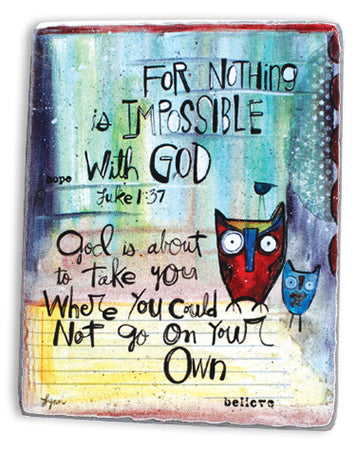 FOR NOTHING
is IMPOSSIBLE
With GOD
hope
Luke 1:37
God is about
to take you
Where You Could
Not go On Your
Own
Lynn
believe